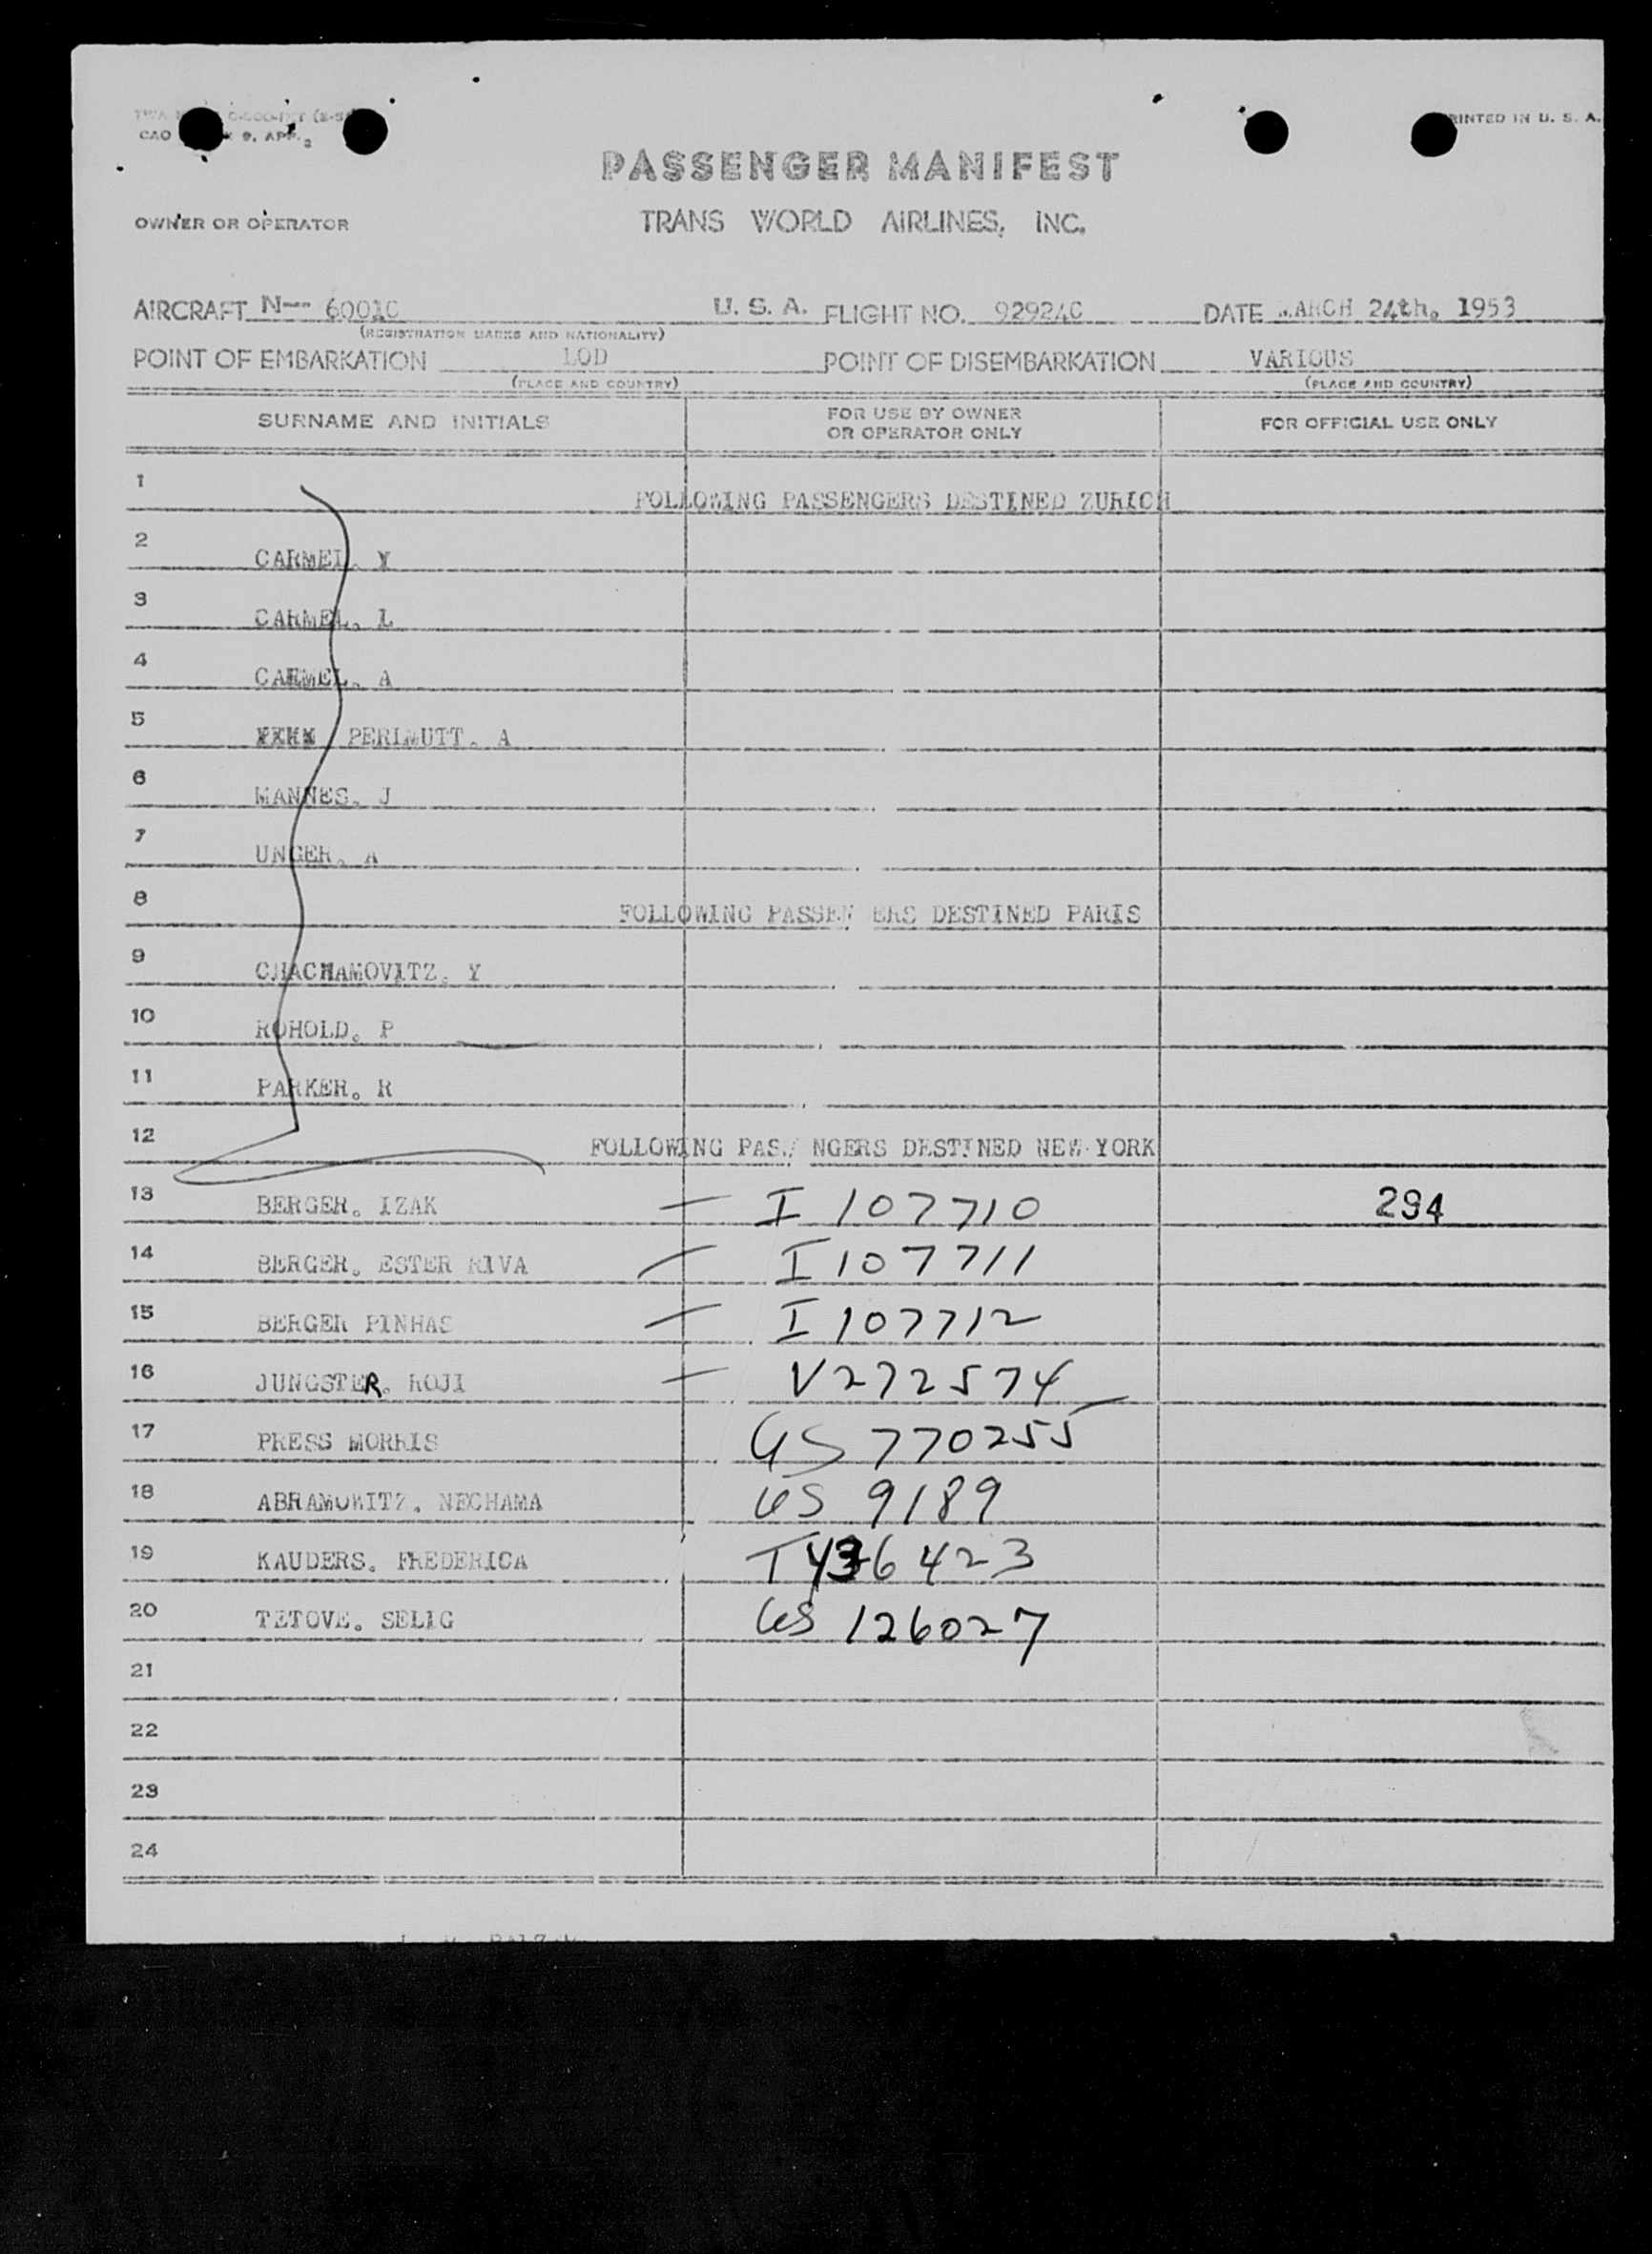 CAO 9, APP. 2
PRINTED IN U. S. A.
PASSENGER MANIFEST
OWNER OR OPERATOR TRANS WORLD AIRLINES, INC.
AIRCRAFT N-- 6001C U. S. A. FLIGHT NO. 92924C DATE MARCH 24th. 1953
(REGISTRATION MARKS AND NATIONALITY)
POINT OF EMBARKATION LOD POINT OF DISEMBARKATION VARIOUS
(PLACE AND COUNTRY) (PLACE AND COUNTRY)
SURNAME AND INITIALS FOR USE BY OWNER OR OPERATOR ONLY FOR OFFICIAL USE ONLY
1 FOLLOWING PASSENGERS DESTINED ZURICH
2 CARMEL. Y
3 CARMEL. L
4 CARMEL. A
5 PERLMUTT. A
6 MANNES. J
7 UNGER. A
8 FOLLOWING PASSEN ERS DESTINED PARIS
9 CHACHAMOVITZ. Y
10 ROHOLD. P
11 PARKER. R
12 FOLLOWING PAS NGERS DESTINED NEW YORK
13 BERGER. IZAK — I 107710 294
14 BERGER. ESTER RIVA — I 107711
15 BERGER PINHAS — I 107712
16 JUNGSTER. ROJI — V272574
17 PRESS MORRIS US 770255
18 ABRAMOWITZ. NECHAMA US 9189
19 KAUDERS. FREDERICA T436423
20 TETOVE. SELIG US 126027
21
22
23
24